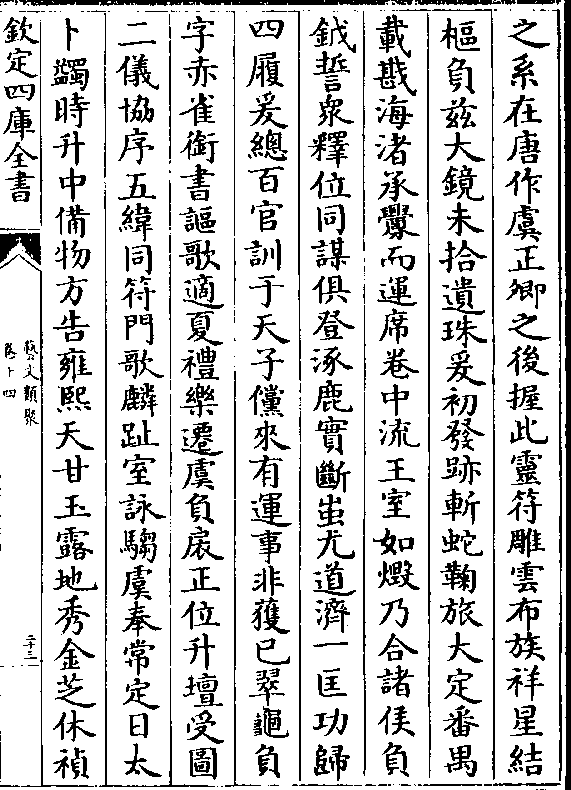 之系在唐作虞正卿之後握此靈符雕雲布族祥星結
樞負兹大鏡未拾遺珠爰初發跡斬蛇鞠旅大定番禺
載戡海渚承釁而運席卷中流王室如燬乃合諸侯負
鉞誓衆釋位同謀俱登涿鹿實斷蚩尤道濟一匡功歸
四履爰總百官訓于天子儻來有運事非獲已翠龜負
字赤雀銜書謳歌適夏禮樂遷虞負扆正位升壇受圖
二儀協序五緯同符門歌麟趾室詠騶虞奉常定日太
卜蠲時升中備物方告雍熙天甘玉露地秀金芝休禎
欽定四庫全書
藝文類聚
卷十四
二十三